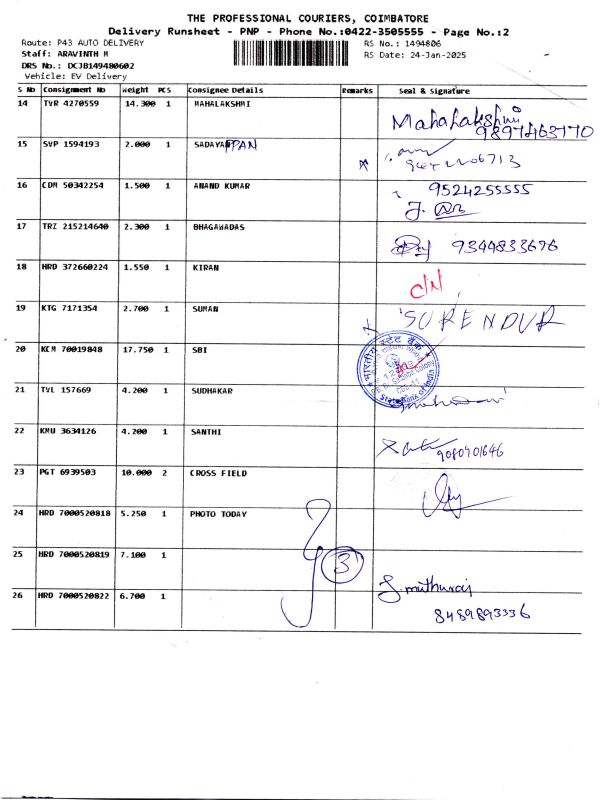 THE PROFESSIONAL COURIERS, COIMBATORE
Delivery Runsheet - PNP - Phone No.:0422-3505555 - Page No.:2
Route: P43 AUTO DELIVERY RS No.: 1494806
Staff: ARAVINTH M RS Date: 24-Jan-2025
DRS No.: DCJB149480602
Vehicle: EV Delivery
S No Consignment No Weight PCS Consignee Details Remarks Seal & Signature
14 TVR 4270559 14.300 1 MAHALAKSHMI Mahalakshmi
9897463770
15 SVP 1594193 2.000 1 SADAYAPPAN
16 CDM 50342254 1.500 1 ANAND KUMAR 9524255555
17 TRZ 215214640 2.300 1 BHAGAWADAS 9344833676
18 HRD 372660224 1.550 1 KIRAN C/N
19 KTG 7171354 2.700 1 SUMAN SURENDUR
20 KCM 70019848 17.750 1 SBI
भारतीय स्टेट बैंक
State Bank of India
21 TVL 157669 4.200 1 SUDHAKAR
22 KMU 3634126 4.200 1 SANTHI
9080901646
23 PGT 6939503 10.000 2 CROSS FIELD
24 HRD 7000520818 5.250 1 PHOTO TODAY
25 HRD 7000520819 7.100 1 3
26 HRD 7000520822 6.700 1 J. muthuraj
8489893336